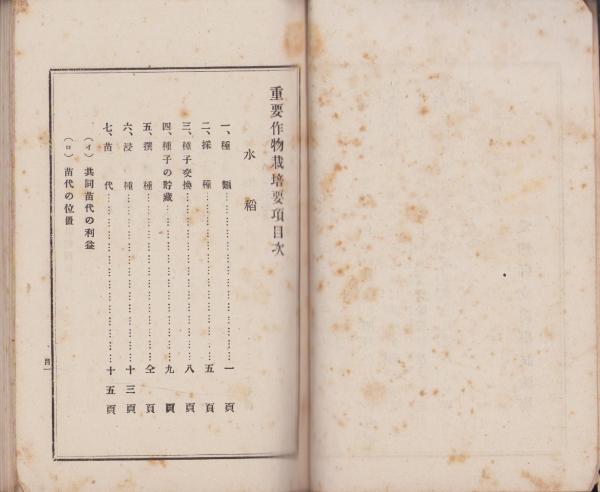 重要作物栽培要項目次
水稲
一、種類…………………………一頁
二、採種…………………………五頁
三、種子交換…………………………八頁
四、種子の貯蔵…………………………九頁
五、撰種…………………………仝頁
六、浸種…………………………十三頁
七、苗代…………………………十五頁
（イ）共同苗代の利益
（ロ）苗代の位置